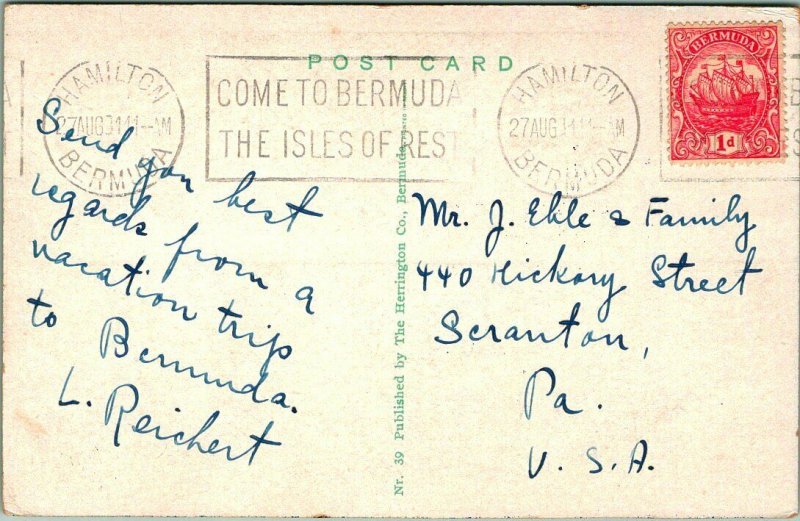 POST CARD
HAMILTON
27 AUG 31 11--AM
BERMUDA
COME TO BERMUDA
THE ISLES OF REST
HAMILTON
27 AUG 31 11--AM
BERMUDA
BERMUDA
1d
Send you best
regards from a
vacation trip
to Bermuda.
L. Reichert
Nr. 39 Published by The Herrington Co., Bermuda
Mr. J. Ehle & Family
440 Hickory Street
Scranton,
Pa.
U. S. A.